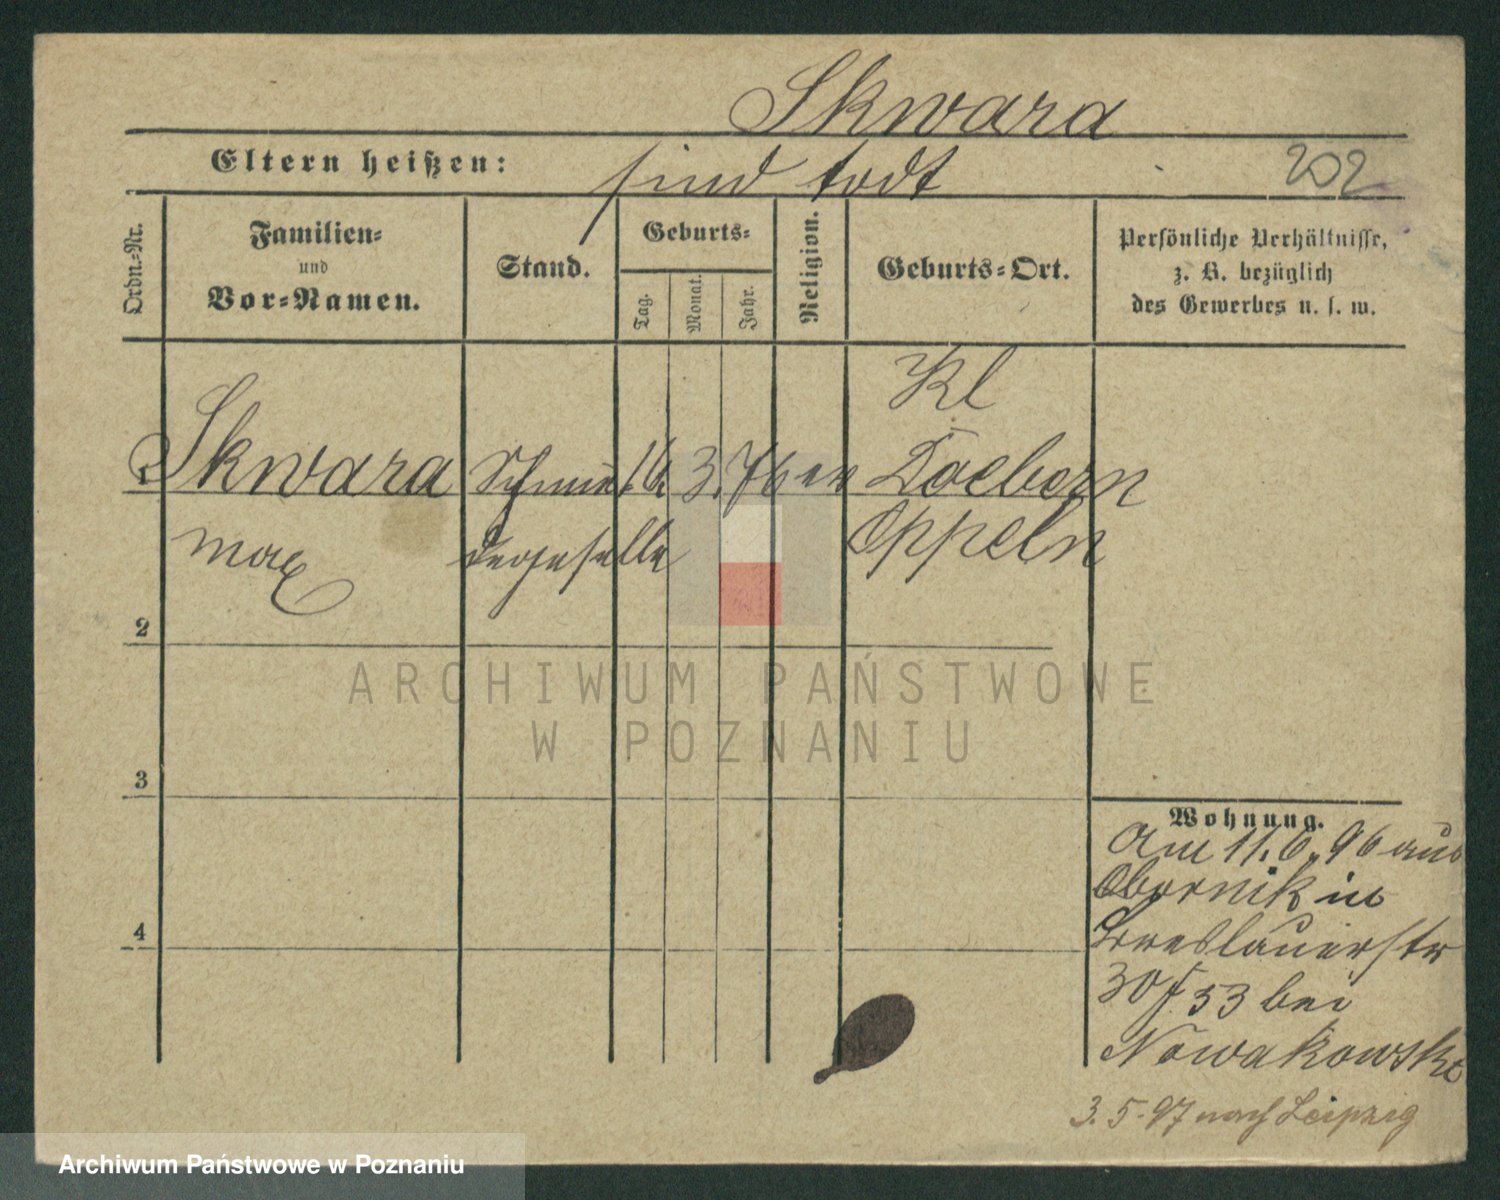 Skwara
Eltern heißen: sind todt 202
Ordn.-Nr.
Familien-
und
Vor-Namen.
Stand.
Geburts-
Tag.
Monat.
Jahr.
Religion.
Geburts-Ort.
Persönliche Verhältnisse,
z. B. bezüglich
des Gewerbes u. s. w.
Kl
1 Skwara Schmie 16. 3. 76 ev Doebern
Max dergeselle Oppeln
2
ARCHIWUM PAŃSTWOWE
W POZNANIU
3
4
Wohnung.
Am 11. 6. 96 aus
Obornik in
Breslauerstr
30/33 bei
Nowakowski
3. 5. 97 nach Leipzig
Archiwum Państwowe w Poznaniu